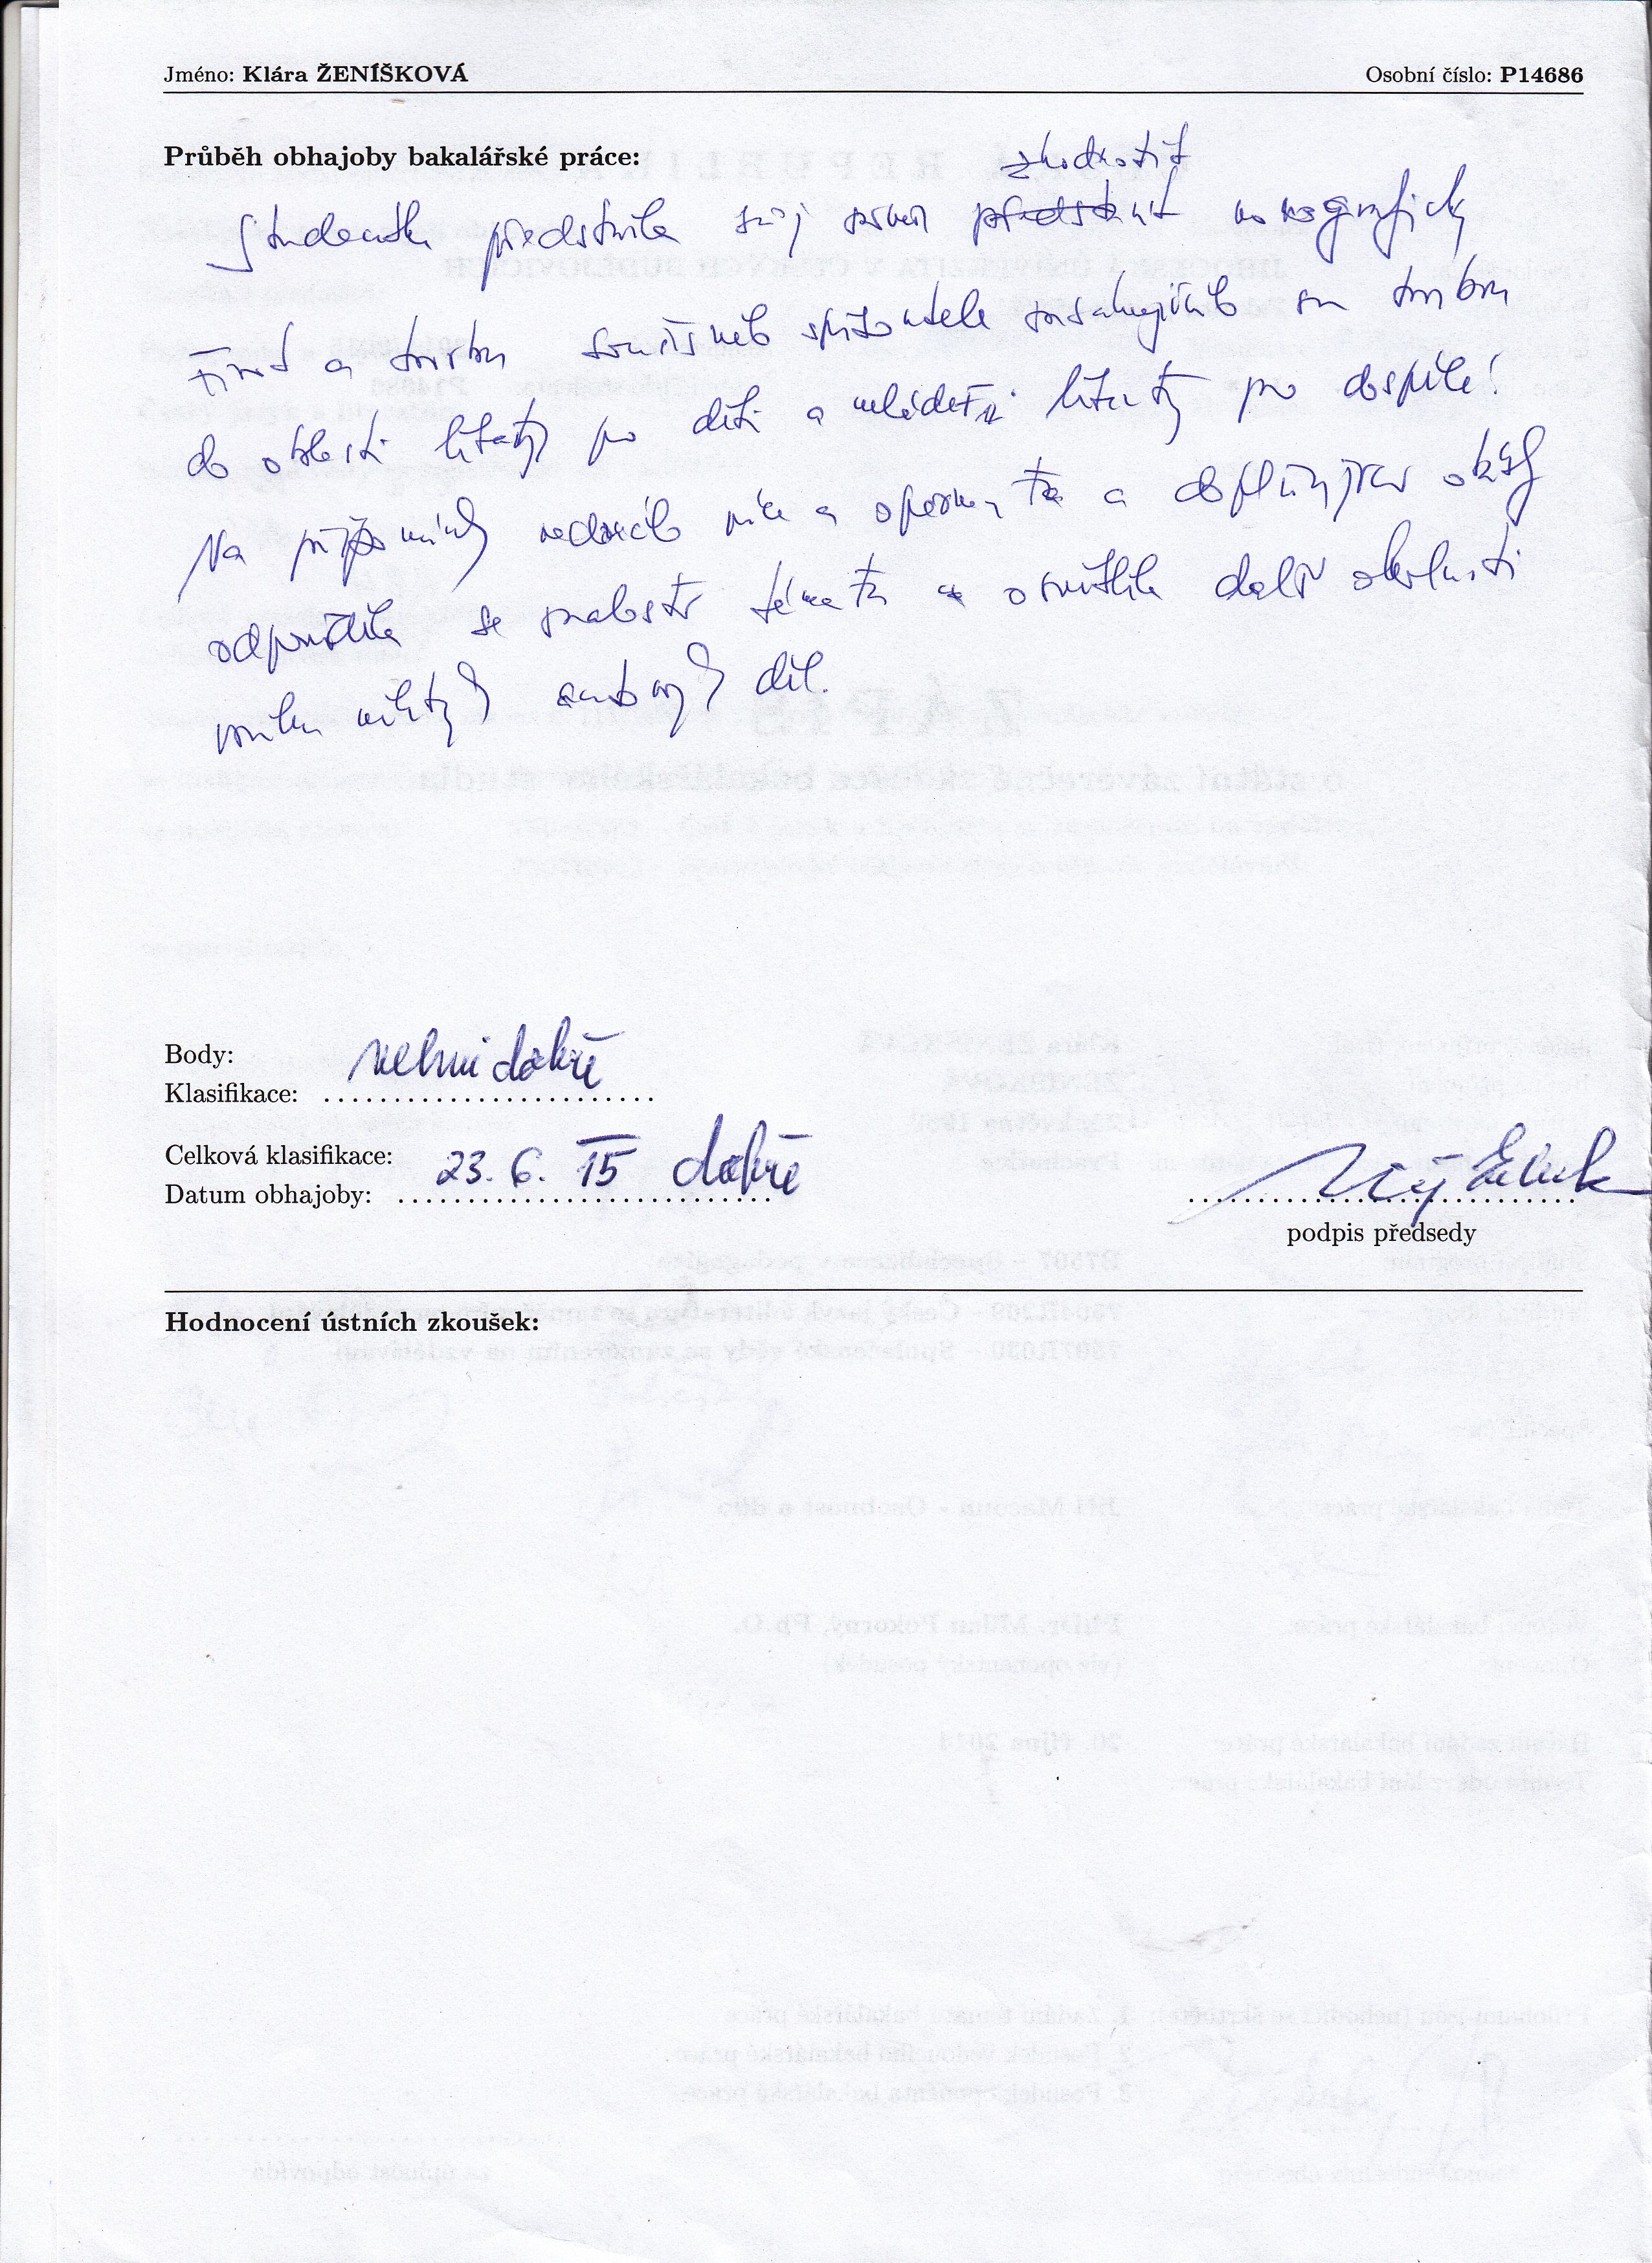 Jméno: Klára ŽENÍŠKOVÁ Osobní číslo: P14686
Průběh obhajoby bakalářské práce:
zhodnotit
Studentka představila svůj záměr představit monograficky
život a tvorbu současného spisovatele zasahujícího svou tvorbou
do oblasti literatury pro děti a mládež i literatury pro dospělé.
Na připomínky vedoucího práce a oponenta a doplňující otázky
odpověděla se znalostí tématu a osvětlila další okolnosti
vzniku některých autorových děl.
Body:
velmi dobře
Klasifikace:
Celková klasifikace:
23. 6. 15 dobře
Datum obhajoby:
podpis předsedy
Hodnocení ústních zkoušek: